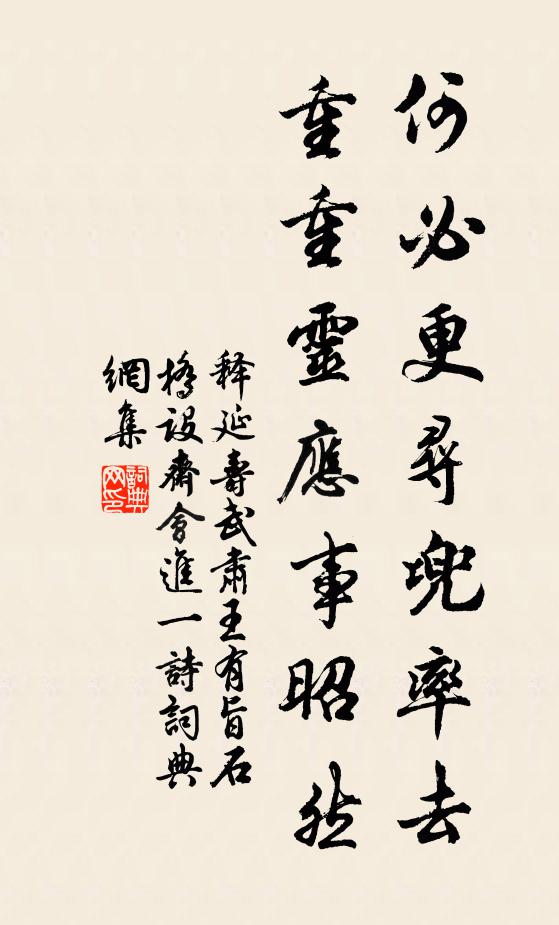 何必更尋兜率去
重重靈應事昭然
释延壽武肅王有旨石
橋設齋會進一詩詞典
網集
詞典
网印